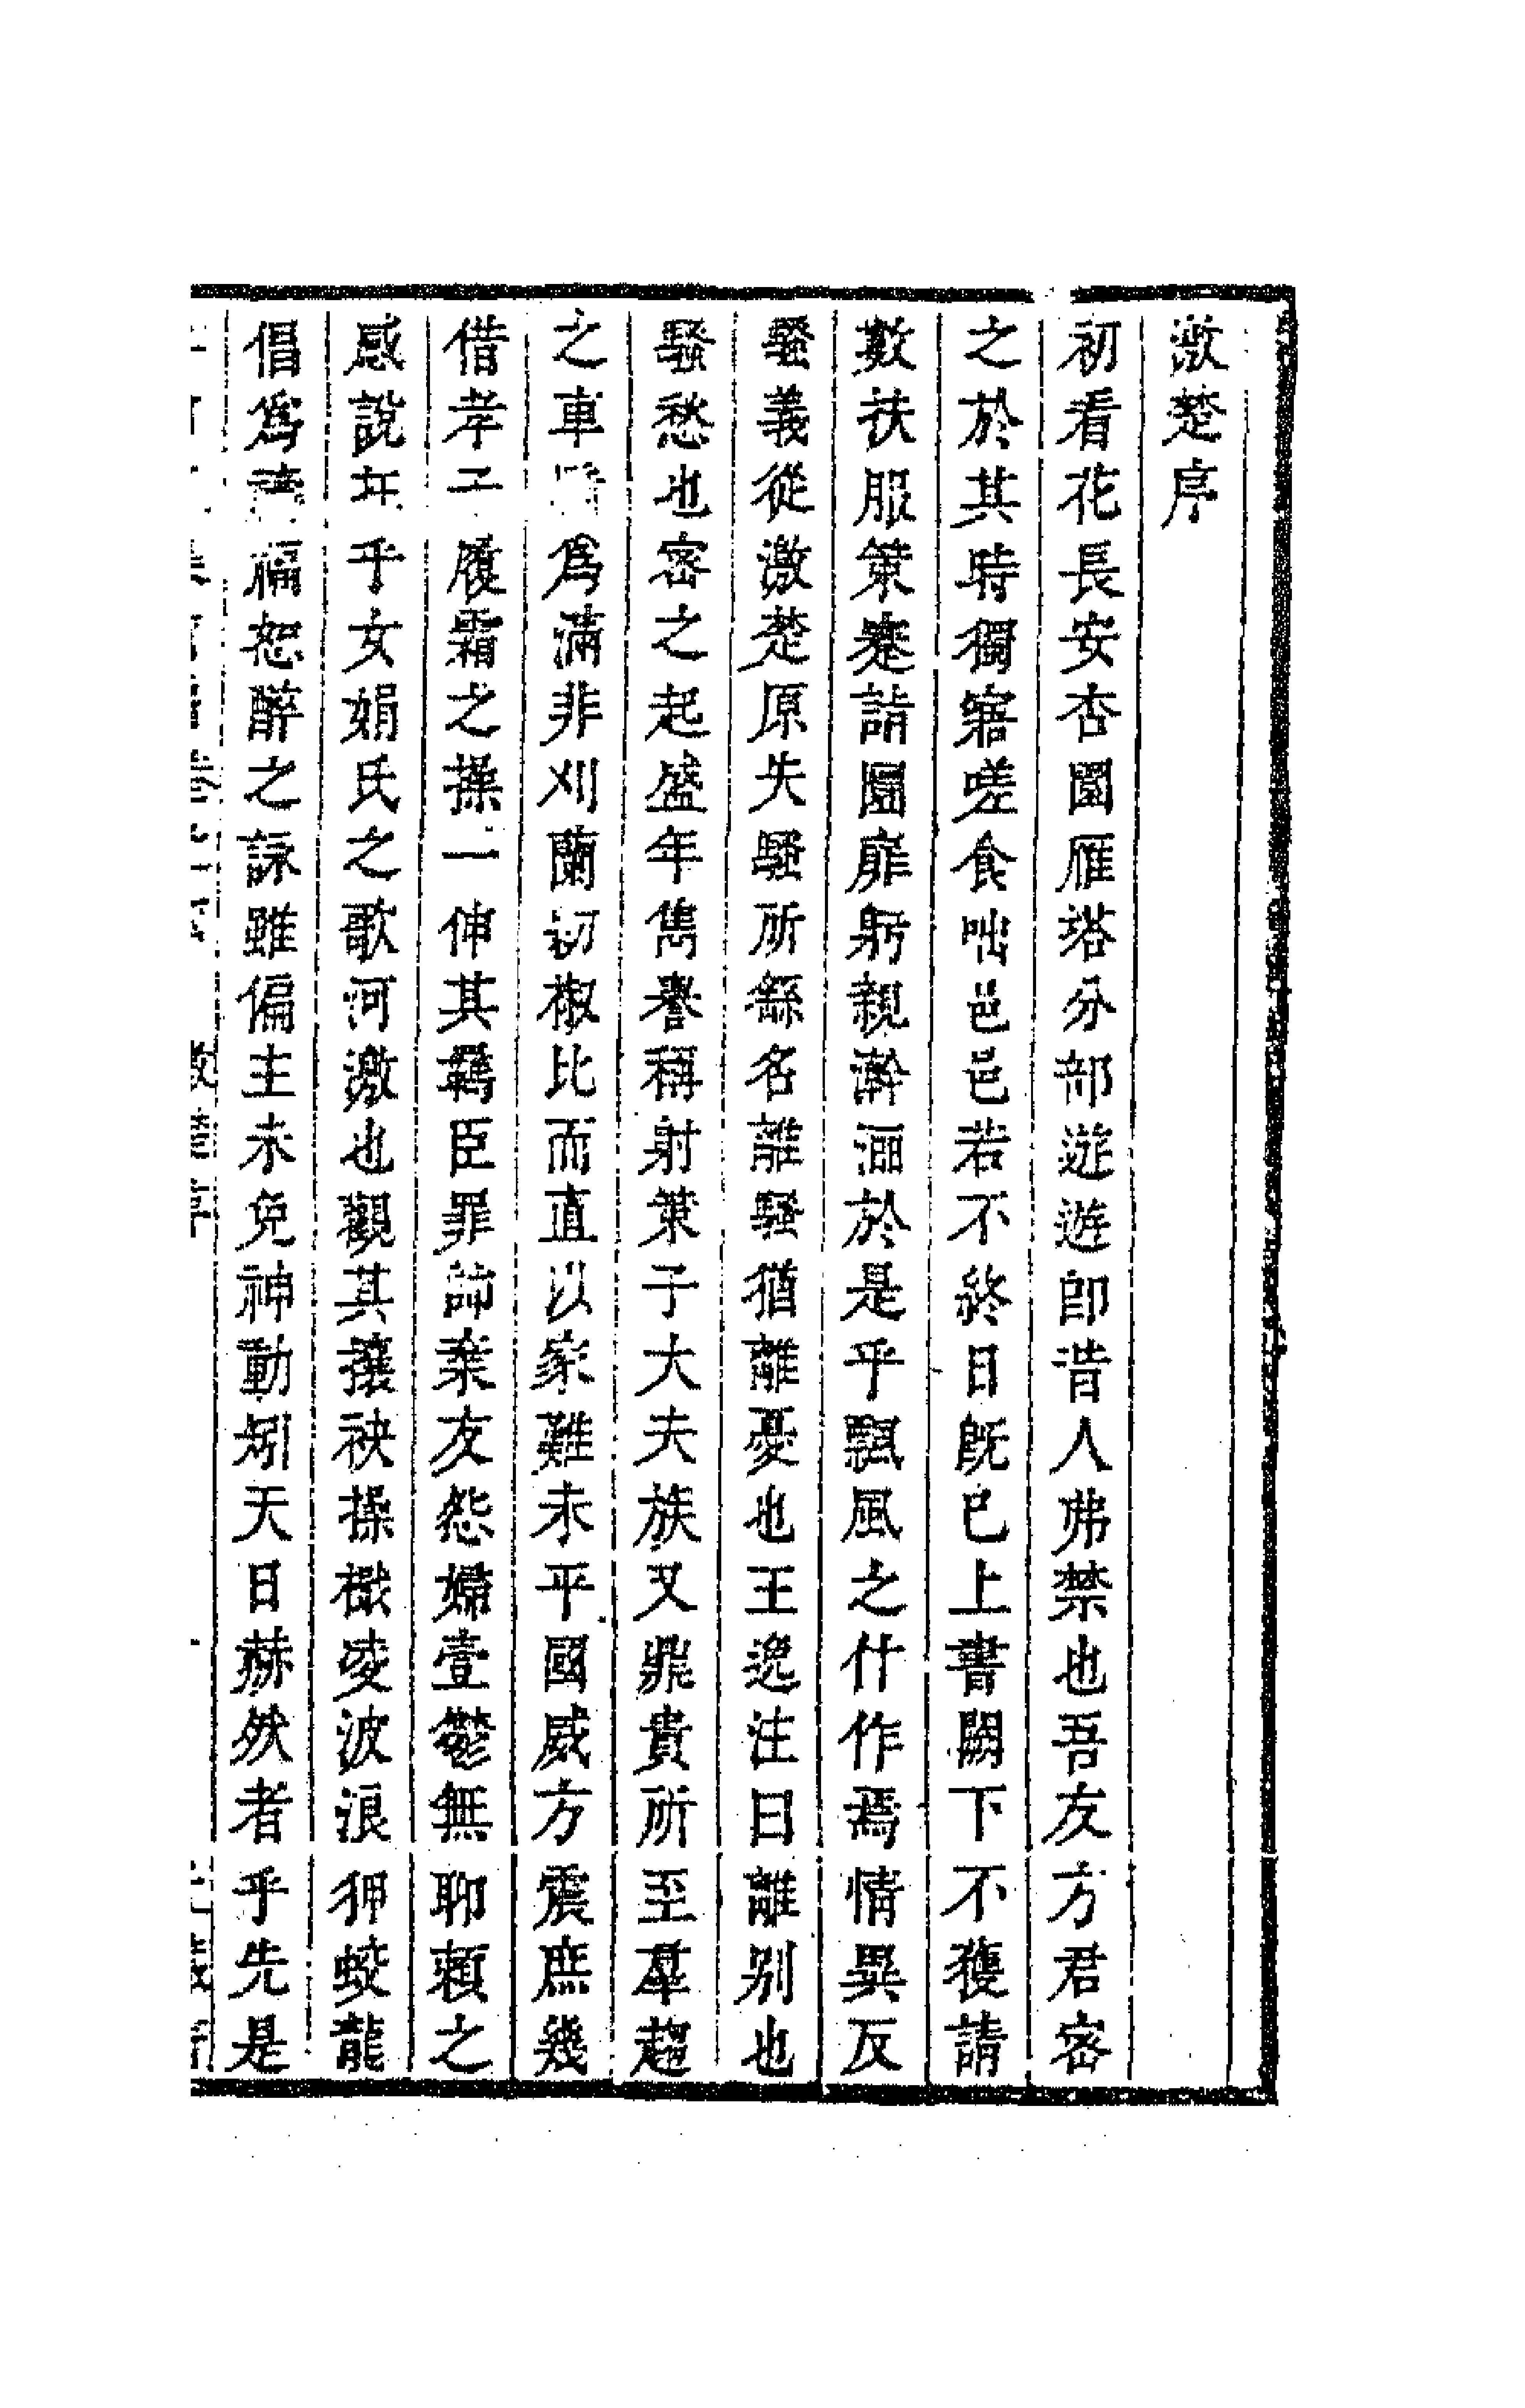 激楚序
初看花長安杏園雁塔分部遊遊卽昔人弗禁也吾友方君密
之於其時獨窹嗟食咄邑邑若不終日旣已上書闕下不獲請
數扶服棄蹇請圜扉躬親澣洒於是乎飄風之什作焉情異反
騷義從激楚原夫騷所繇名離騷猶離憂也王逸注曰離别也
騷愁也密之起盛年雋譽稱射策子大夫族又鼎貴所至羣趨
之車 爲滿非刈蘭初椒比而直以家難未平國威方震庶幾
借孝子履霜之操一伸其羈臣罪 棄友怨婦壹鬱無聊賴之
感說在乎女娟氏之歌河激也觀其攘袂操檝凌波浪狎蛟龍
倡爲禱福恕醉之詠雖偏主未免神動矧天日赫然者乎先是